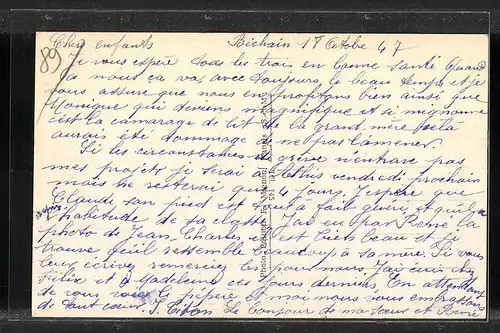 89
Chers enfants Bichain 17 Octobre 47
Je vous espère tous les trois en bonne santé Quand
à nous ça va, avec toujours le beau temps et je
vous assure que nous en profitons bien ainsi que
Monique qui deviens magnifique et si mignonne
c'est la camarade de lit de la grand mère celà
aurais été dommage de ne pas l'amener.
Si les circonstances de grève n'entrave pas
mes projets je serai à Athis vendredi prochain
mais ne resterai que 4 jours. J'espère que
Claude, son pied est tout à fait guéri, et qu'il a
l'habitude de sa
J'ai eu par René la
photo de Jean-Charles c'est très beau et je
trouve qu'il ressemble beaucoup à sa mère. Si vous
leur écrivez remerciez les pour nous. J'ai chez
Félix et Madeleine ces jours derniers. En attendant
de vous le pépère et moi nous vous embrassons
de tout cœur. Le bonjour de ma sœur et René